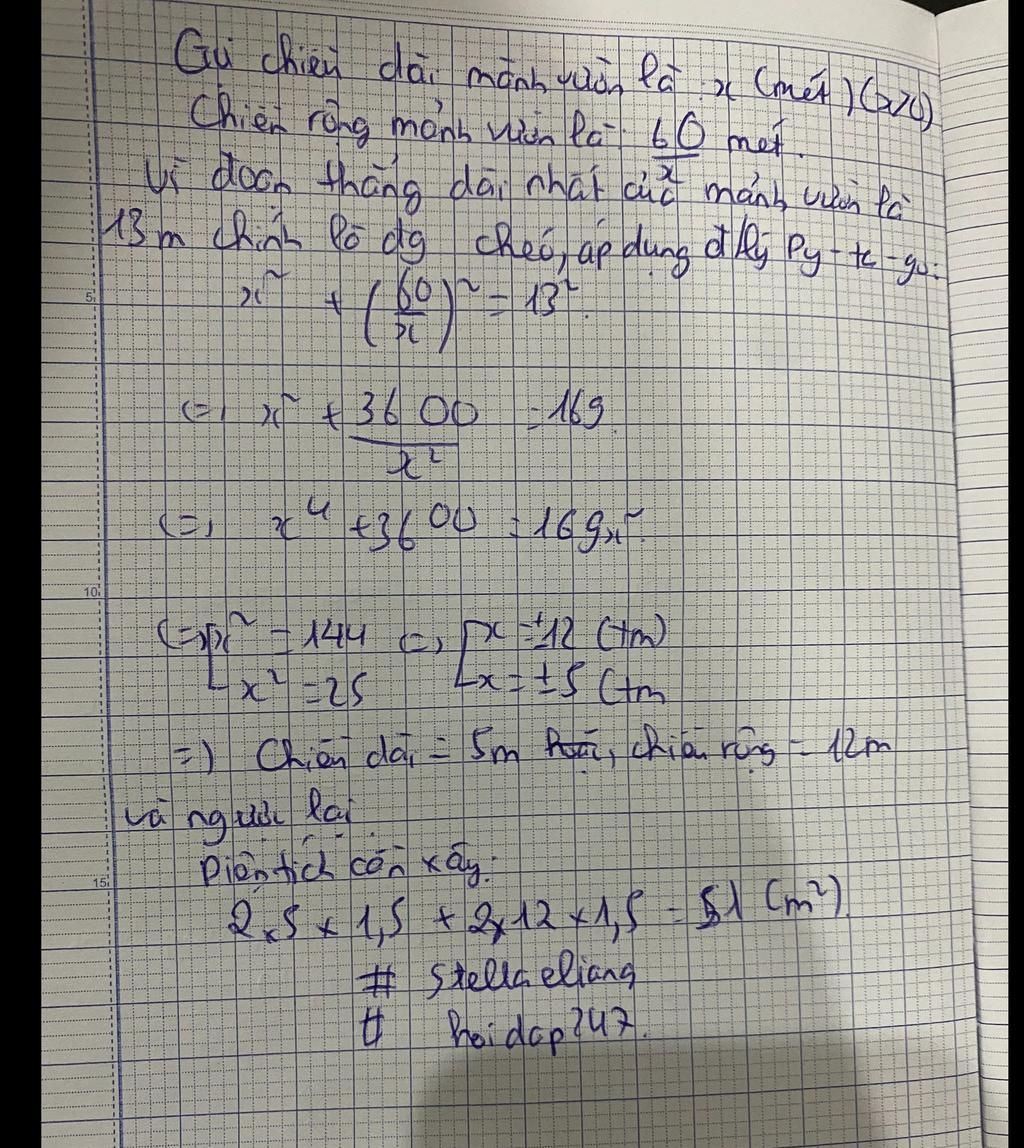 Gọi chiều dài mảnh vườn là x (mét) (x>0)
Chiều rộng mảnh vườn là: 60/x mét.
Vì đoạn thẳng dài nhất của mảnh vườn là
13m chính là đg chéo, áp dụng đ/lý Py-ta-go:
x² + (60/x)² = 13².
5
(=) x² + 3600/x² = 169.
(=) x⁴ + 3600 = 169x².
10
(=) [x² = 144 (=) [x = ±12 (tm)
[x² = 25 [x = ±5 (tm
=) Chiều dài = 5m , chiều rộng = 12m
và ngược lại
Diện tích cần xây:
15
2×5×1,5 + 2×12×1,5 = 51 (m²)
# stella eliang
# hoidap247.